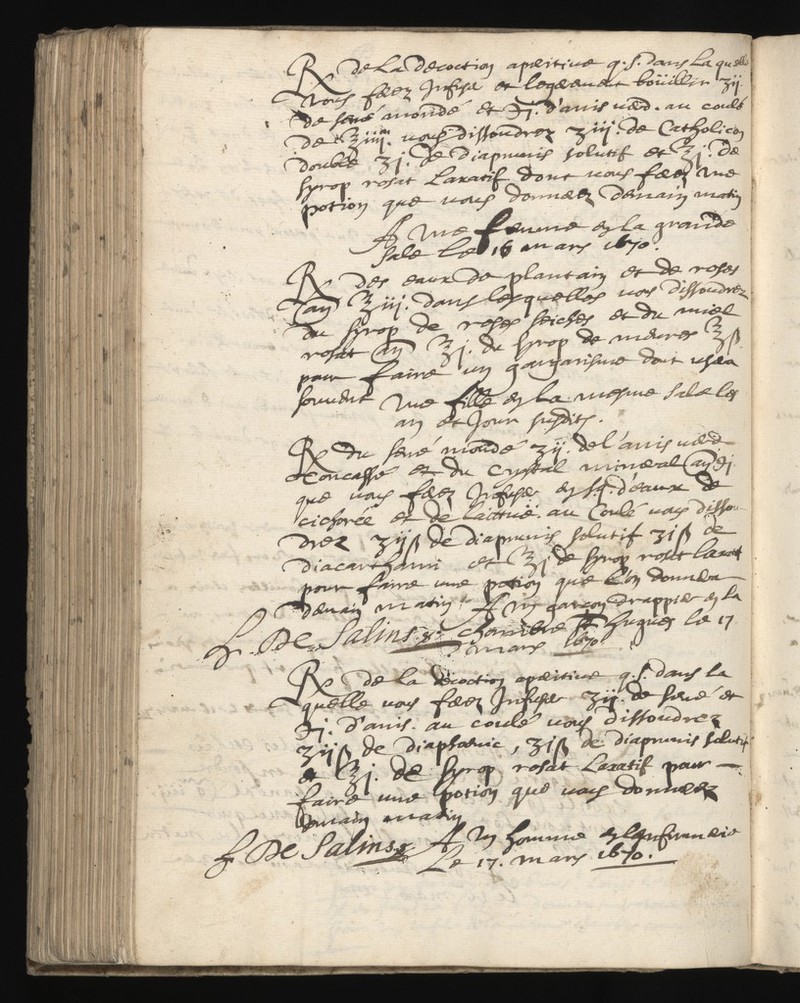 ℞ de la decoction aperitiue q. s. dans la quelle
vous ferez Infuser et legerement boüillir ʒij.
de sené mondé et ℈j. d'anis verd. au coulé
de ℥iiij. vous dissoudrez ʒiij. de Catholicon
double ʒj. de diaprunis solutif et ℥j. de
syrop rosat Laxatif dont vous ferez vne
potion que vous donnerez demain matin
A vne femme en la grande
sale Le 16 mars 1670.
℞ des eaux de plantain et de roses
an ℥iij. dans lesquelles vous dissoudrez
du syrop de roses seiches et du miel
rosat an ℥j. du syrop de meures ℥ß
pour faire un gargarisme dont usera
souuent vne fille en la mesme sale les
an et Jour susdits.
℞ du sené mondé ʒij. de l'anis verd
concassé et du Crystal mineral an ℈j
que vous ferez Infuser en q. s. d'eaux de
cichorée et de laictue. au Coulé vous dissou-
drez ʒijß de diaprunis solutif ʒiß de
diacarthami et ℥j de syrop rosat laxatif
pour faire une potion que l'on donnera
demain matin A un garçon drappier en la
h. De Salins chambre St Hugues le 17
mars 1670.
℞ de la decoction aperitiue q. s. dans la
quelle vous ferez Infuser ʒij. de sené et
℈j. d'anis. au coulé vous dissoudrez
ʒijß de diaphœnic, ʒiß de diaprunis solutif
et ℥j. de syrop rosat Laxatif pour
faire une potion que vous donnerez
demain matin
h. De Salins A un homme en l'infirmerie
Le 17. mars 1670.